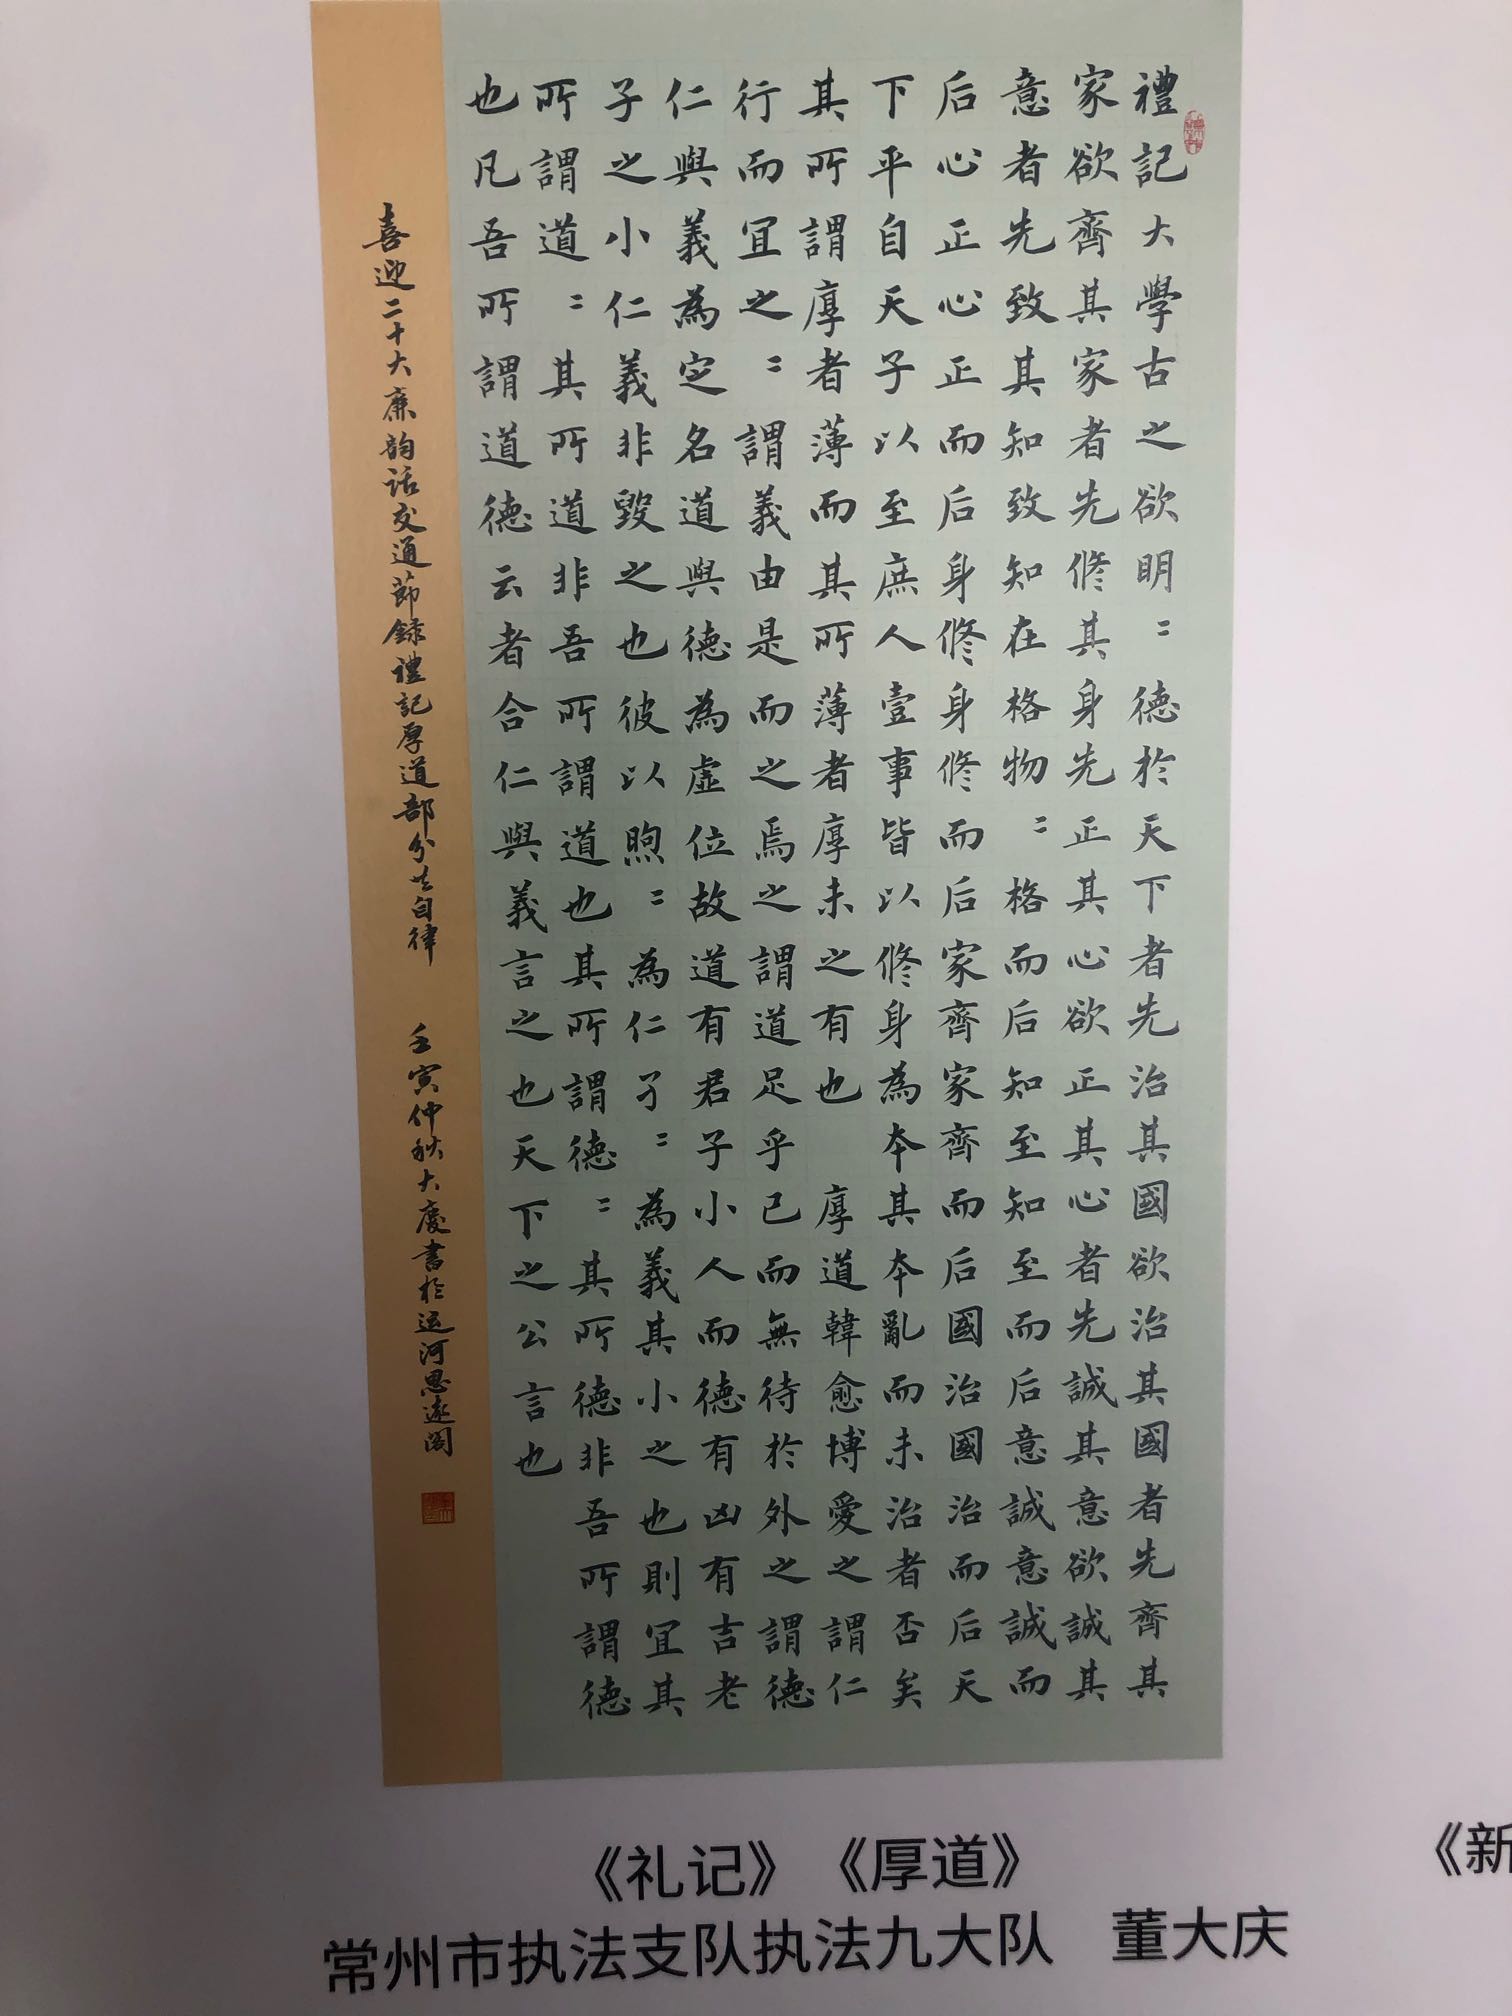 禮記大學古之欲明〻德於天下者先治其國欲治其國者先齊其
家欲齊其家者先修其身先正其心欲正其心者先誠其意欲誠其
意者先致其知致知在格物〻格而后知至知至而后意誠意誠而
后心正心正而后身修身修而后家齊家齊而后國治國治而后天
下平自天子以至庶人壹事皆以修身為本其本亂而未治者否矣
其所謂厚者薄而其所薄者厚未之有也 厚道韓愈博愛之謂仁
行而宜之〻謂義由是而之焉之謂道足乎己而無待於外之謂德
仁與義為定名道與德為虛位故道有君子小人而德有凶有吉老
子之小仁義非毀之也彼以煦〻為仁孑〻為義其小之也則宜其
所謂道〻其所道非吾所謂道也其所謂德〻其所德非吾所謂德
也凡吾所謂道德云者合仁與義言之也天下之公言也
喜迎二十大廉韵话交通節録禮記厚道部分共自律 壬寅仲秋大慶書於运河思遠阁
《礼记》《厚道》
常州市执法支队执法九大队 董大庆
《新